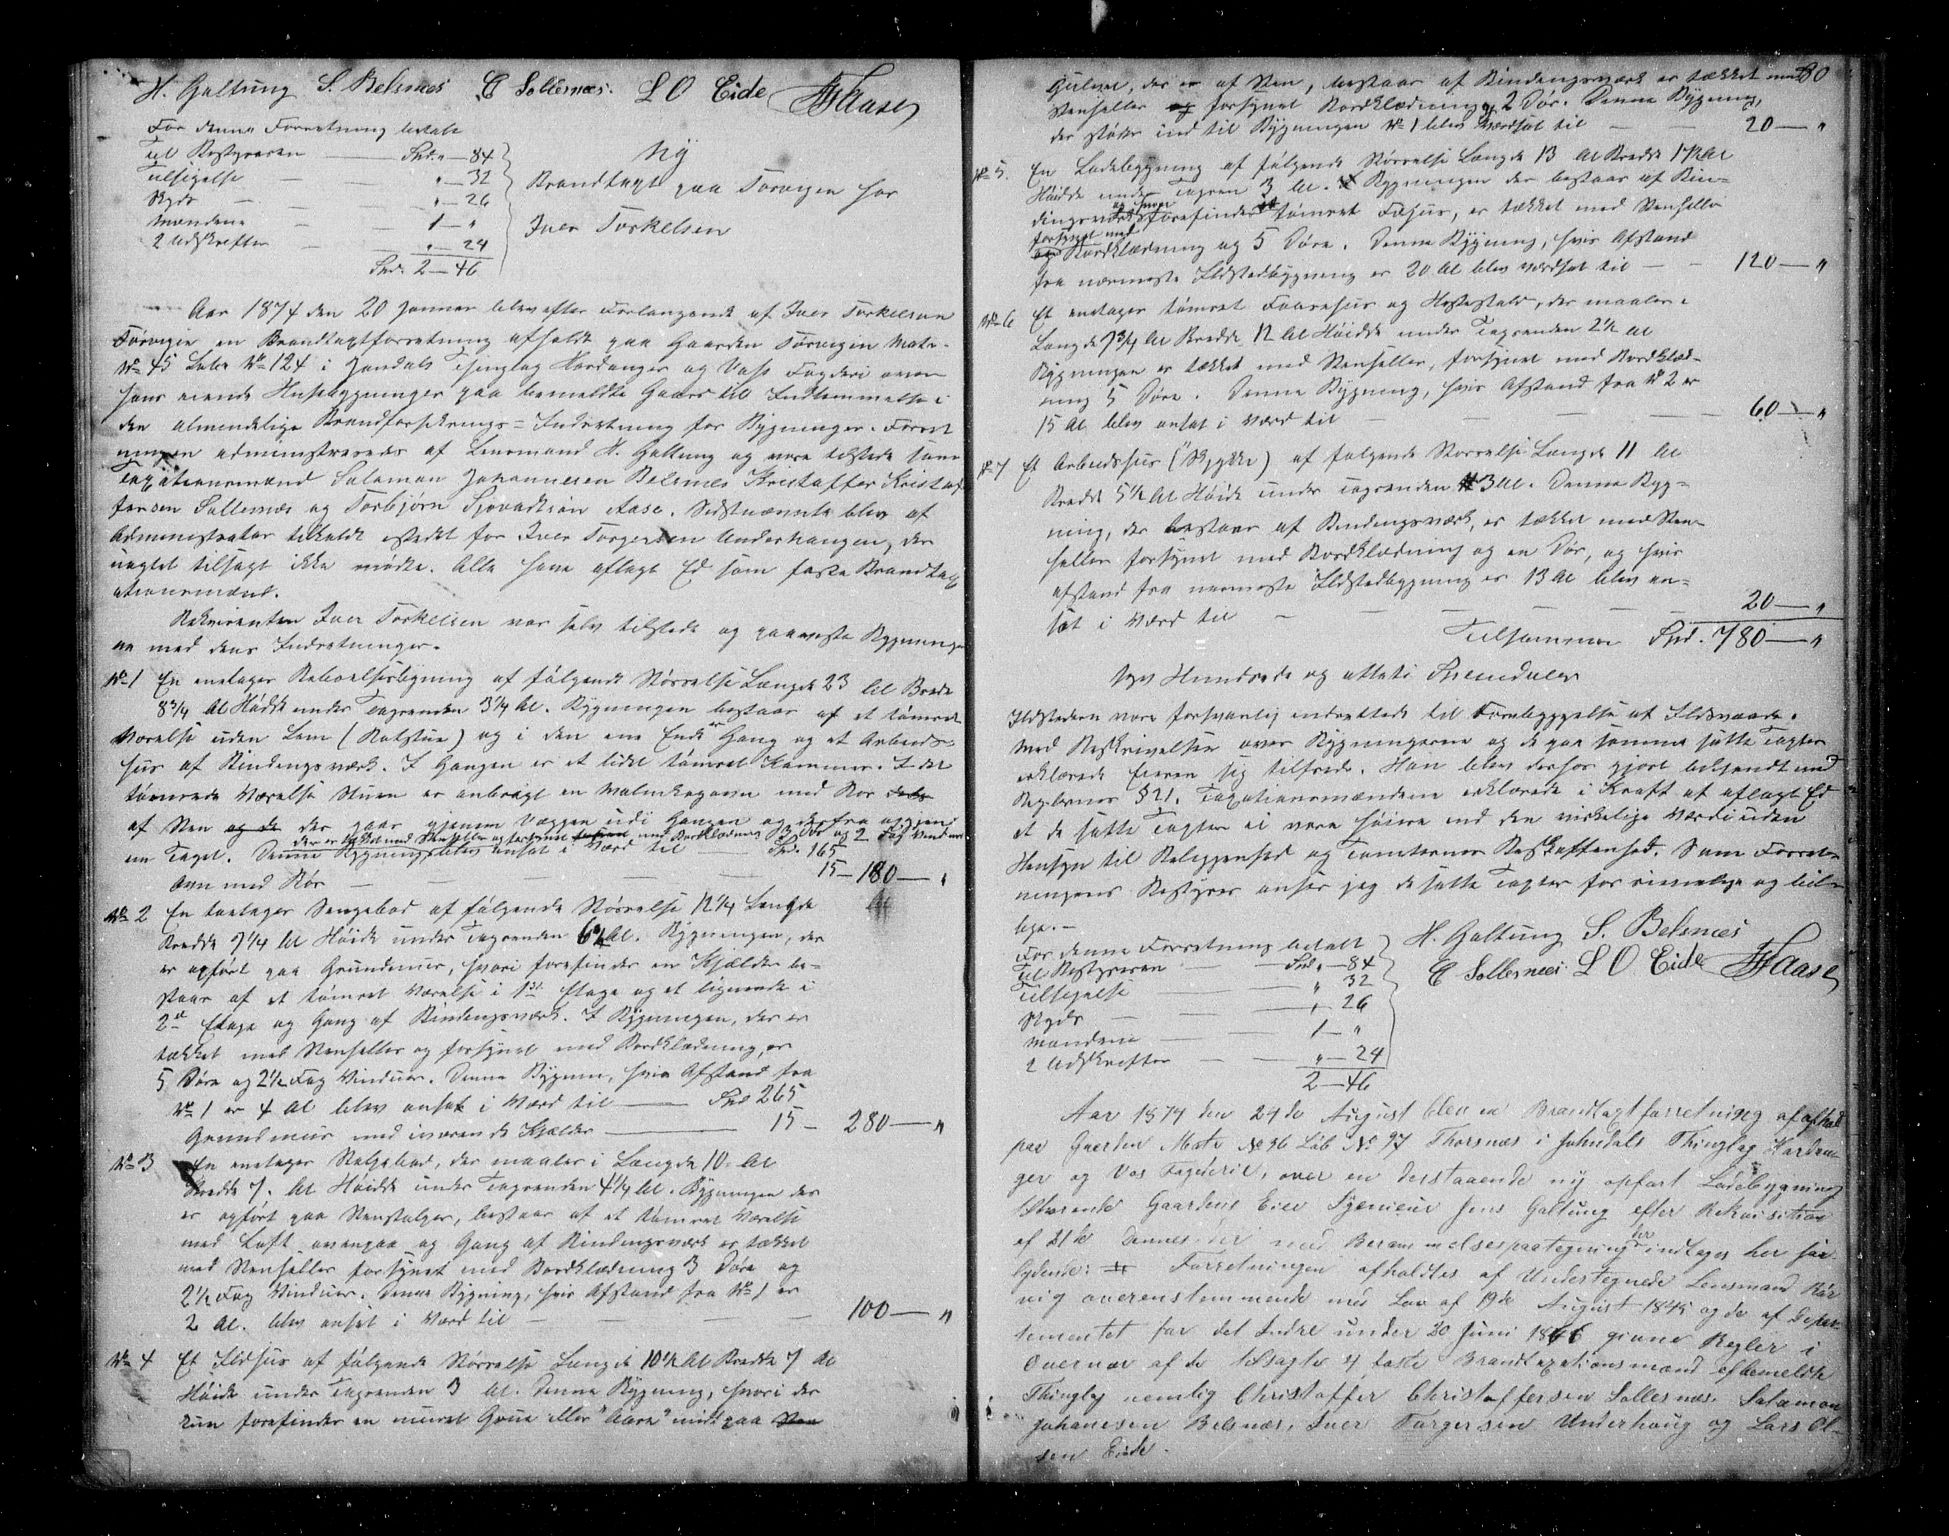 H. Galtung S. Belsnæs C Sollesnæs. L O Eide Aase
For denne Forretning betalt
Til Bestyreren — Spd. " — 84
Tilsigelse — " — 32
Skyds — " — 26
Mændene — 1 — "
2 Udskrifter — " — 24
Spd. 2 — 46
Ny
Brandtaxt paa Torvigen for
Iver Torkelsen
Aar 1874 den 20 Januar blev efter Forlangende af Iver Torkelsen
Torvigen en Brandtaxtforretning afholdt paa Gaarden Torvigen Matr.
No 45 Løbe No 124 i Jondals Thinglag Hardanger og Voss Fogderi over
hans eiende Husebygninger paa bemeldte Gaard til Indlemmelse i
den almindelige Brandforsikrings-Indretning for Bygninger. Forret
ningen administreredes af Lensmand H. Galtung og vare tilstede som
Taxationsmænd Salamon Johannesen Belsnæs Kristoffer Kristof
fersen Sollesnæs og Torbjørn Sjovatsen Aase. Sidstnævnte blev af
Administrator tilkaldt istedet for Iver Torgersen Underhaugen, der
uagtet tilsagt ikke mødte. Alle have aflagt Ed som faste Brandtax
ationsmænd.
Rekvirenten Iver Torkelsen var selv tilstede og paaviste Bygninger
ne med dens Indretninger.
No 1 En enetages Beboelsesbygning af følgende Størrelse Længde 23 Al Brede
8 3/4 Al Høide under Tagrenden 3 1/4 Al. Bygningen bestaar af et tømret
Værelse uden Lem (Røgstue) og i den ene Ende er Gang og et Arbeids-
hus af Bindingsværk. I Gangen er et lidet tømret Kammer. I det
tømrede Værelse Stuen er anbragt en Vindovn med Rør
af Sten og de der gaar gjennem Væggen udi Gangen og derfra op gjen
der er tækket med Stenheller og forsynet med Bordklædning 3 Dør og 2 Fag Vinduer
em Taget. Denne Bygning blev ansat i Værd til — Spd. 165
Ovn med Rør — 15 — 180 — "
No 2 En toetages Sengebod af følgende Størrelse 12 1/4 Længde
Bredde 7 1/4 Al Høide under Tagrenden 6 1/2 Al. Bygningen, der
er opført paa Grundmur, hvori forefindes en Kjælder be-
staar af et tømret Værelse i 1st Etage og et lignende i
2d Etage og Gang af Bindingsværk. I Bygningen, der er
tækket med Stenheller og forsynet med Bordklædning, er
5 Døre og 2 1/2 Fag Vinduer. Denne Bygn, hvis Afstand fra
No 1 er 4 Al blev ansat i Værd til — Spd 265
Grundmur med iværende Kjælder — 15 — 280 — "
No 3 En enetages Stolpebod, der maaler i Længde 10. Al
Bredde 7. Al Høide under Tagrenden 4 1/4 Al. Bygningen der
er opført paa Stenstolper, bestaar af et tømret Værelse
med Loft ovenpaa og Gang af Bindingsværk er tækket
med Stenheller forsynet med Bordklædning 3 Døre og
2 1/2 Fag Vinduer. Denne Bygning, hvis Afstand fra No 1 er
2 Al. blev ansat i Værd til — 100 — "
No 4 Et Ildhus af følgende Størrelse Længde 10 1/2 Al Bredde 7 Al
Høide under Tagrenden 3 Al. Denne Bygning, hvori der
kun forefindes en muret Grue eller "Aare" midt paa Sten
80
Gulvet, der er af Sten, bestaar af Bindingsværk er tækket med
Stenheller og forsynet Bordklædning og 2 Dør. Denne Bygning,
der støder ind til Bygningen No 1 blev værdsat til — 20 — "
No 5. En Ladebygning af følgende Størrelse Længde 13 Al Bredde 17 1/2 Al
Høide under Tagren 3 Al. Bygningen der bestaar af Bin-
dingsværk og hvori forefindes et tømret Fæhus, er tækket med Stenheller
forsynet med
og Bordklædning og 5 Døre. Denne Bygning, hvis Afstand
fra nærmeste Ildstedbygning er 20 Al blev værdsat til — 120 — "
No 6 Et enetages tømret Faarehus og Hestestald, der maaler i
Længde 7 3/4 Al Bredde 12 Al Høide under Tagrenden 2 1/2 Al
Bygningen er tækket med Stenheller, forsynet med Bordklæd-
ning 5 Døre. Denne Bygning, hvis Afstand fra No 2 er
15 Al blev ansat i Værd til — 60 — "
No 7 Et Arbeidshus ("Skykke) af følgende Størrelse Længde 11 Al
Bredde 5 1/2 Al Høide under Tagrenden 3 Al. Denne Byg-
ning, der bestaar af Bindingsværk, er tækket med Sten-
heller forsynet med Bordklædning og en Dør, og hvis
afstand fra nærmeste Ildstedbygning er 13 Al blev an-
sat i Værd til — 20 — "
Tilsammen Spd. 780 — "
syv Hundrede og otteti Speciedaler
Ildstederne vare forsvarlig indrettede til Forebyggelse af Ildsvaade.
Med Beskrivelsen over Bygningerne og de paa samme satte Taxter
erklærede Eieren sig tilfreds. Han blev derhos gjort bekjendt med
Reglernes § 21. Taxationsmændene erklærede i Kraft af aflagt Ed
at de satte Taxter ei vare høiere end den virkelige Værdi uden
Hensyn til Beliggenhed og Tomternes Beskaffenhed. Som Forret-
ningens Bestyrer anser jeg de satte Taxter for rimelige og bil-
lige. —
H. Galtung S. Belsnæs
C Sollesnæs L O Eide Aase
For denne Forretning betalt
Til Bestyreren — Spd " — 84
Tilsigelse — " 32
Skyds — " 26
Mændene — 1 — "
2 Udskrifter — " — 24
2 — 46
Aar 1874 den 24de August blev en Brandtaxtforretning afholdt
paa Gaarden Matr No 36 Løb No 97 Thorsnæs i Jondals Thinglag Hardan
ger og Vos Fogderie, over en derstaaende ny opført Ladebygning
tilhørende Gaardens Eier Ingeniør Jens Galtung efter Rekvisition
af 21de dennes der med Berammelsespaategning der indtages her saa
lydende: Forretningen afholdtes af Undertegnede Lensmand
vig overensstemmende med Lov af 19de August 1845 og de af Depar-
tementet for det Indre under 30 Juni 1846 givne Regler i
Overvær af de tilsagte 4 faste Brandtaxationsmænd af bemeldte
Thinglag nemlig Christoffer Christoffersen Sollesnæs, Salamon
Johanesen Belsnæs, Iver Torgersen Underhaug og Lars Ol-
sen Eide.